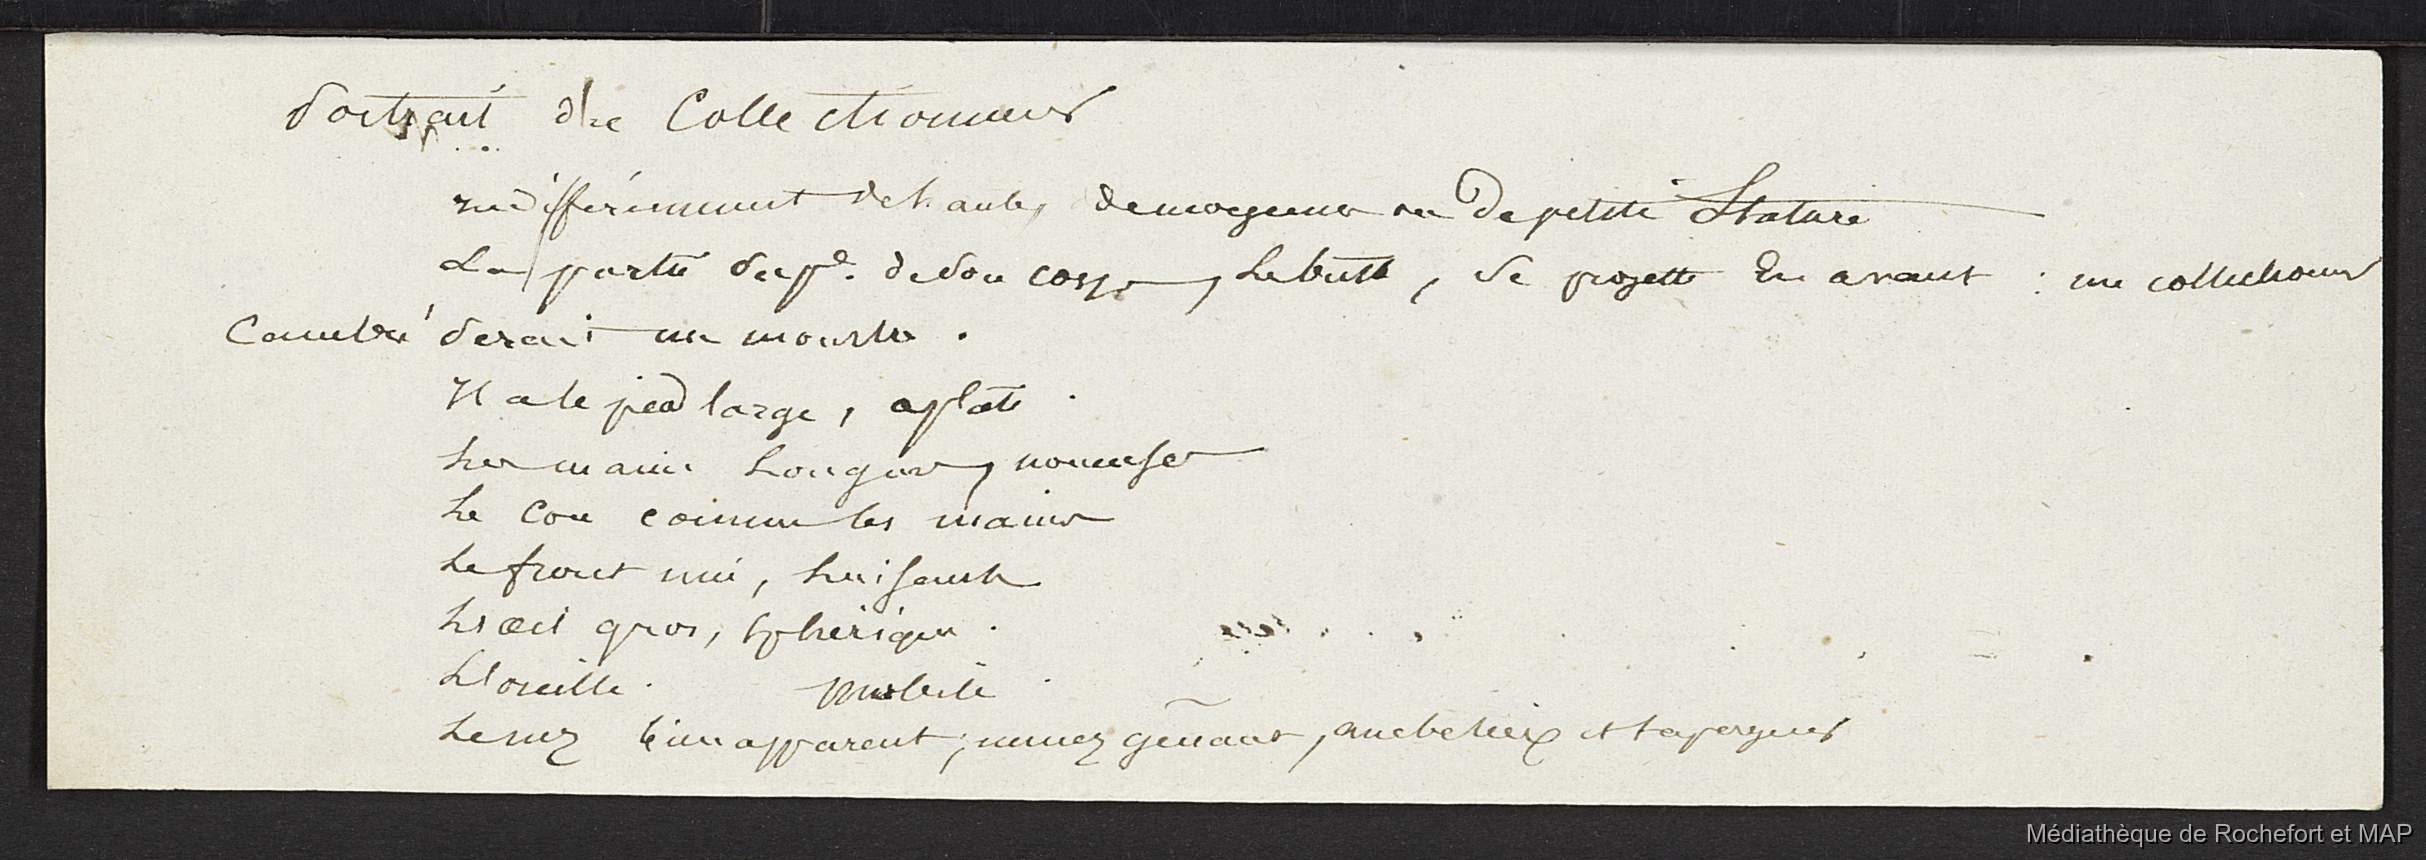 Portrait du Collectionneur
indifféremment de haute, de moyenne ou de petite Stature
La partie supre. de son corps, Le buste, se projette En avant : un collectionneur
Cambré serait un monstre.
Il a le pied large, aplati.
Les mains Longues, noueuses
Le Cou comme les mains
Le front nu, Luisant
L'œil gros, sphérique.
L'oreille. mobile.
Le nez peu apparent ; un nez gênant, et
Médiathèque de Rochefort et MAP